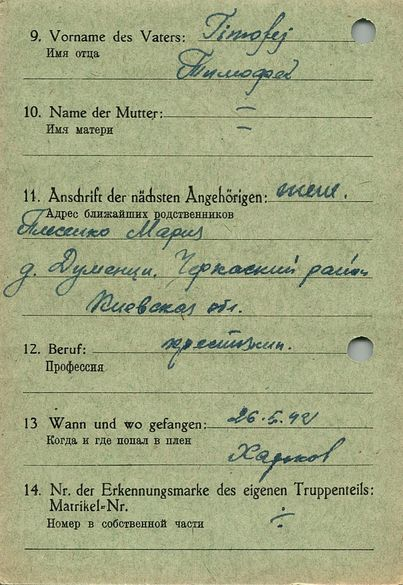 9. Vorname des Vaters: Timofej
Имя отца
Тимофей
10. Name der Mutter: =
Имя матери
11. Anschrift der nächsten Angehörigen:
Адрес ближайших родственников
Мария
д. Думенци. Черкаский район
Киевская обл.
12. Beruf: крестьянин.
Профессия
13 Wann und wo gefangen: 26.5.42
Когда и где попал в плен
Харьков
14. Nr. der Erkennungsmarke des eigenen Truppenteils:
Matrikel-Nr.
Номер в собственной части ÷